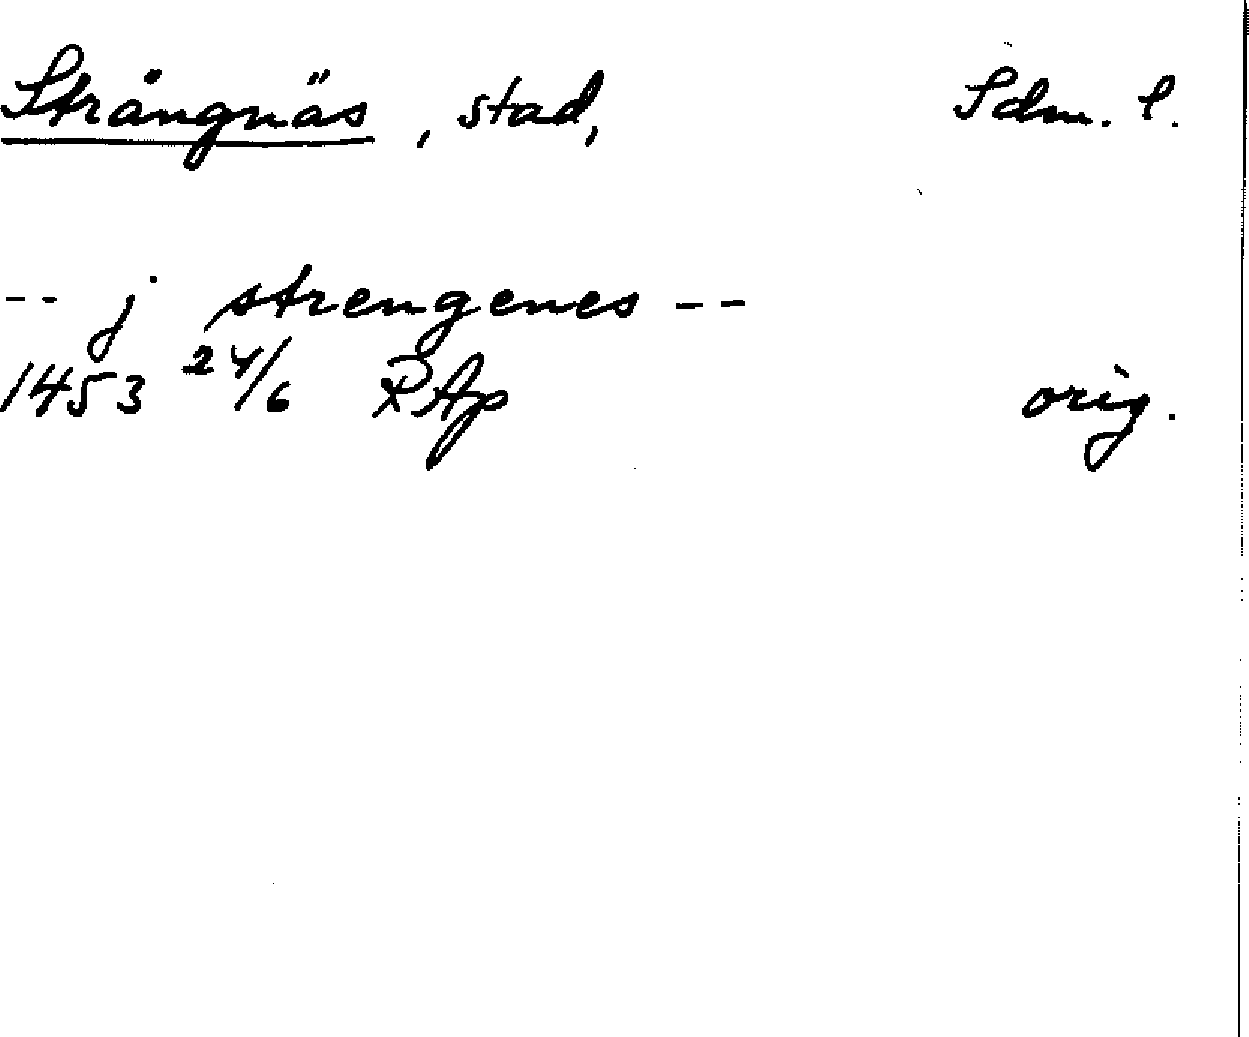 Strängnäs, stad, Sdm. l.
-- j strengenes --
1453 24/6 RAp orig.